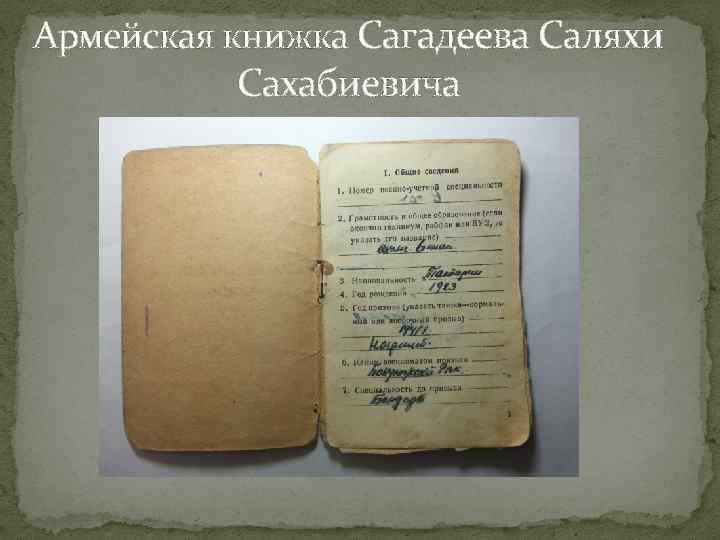 Армейская книжка Сагадеева Саляхи
Сахабиевича
I. Общие сведения
1. Номер военно-учетной специальности
2. Грамотность и общее образование (если
окончил техникум, рабфак или ВУЗ, то
указать его название)
3. Национальность Татарин
4. Год рождения 1923
5. Год призыва (указать также—нормаль-
ный или досрочный призыв)
1941 г.
6. Каким военкоматом призван
РВК
7. Специальность до призыва
Бондарь